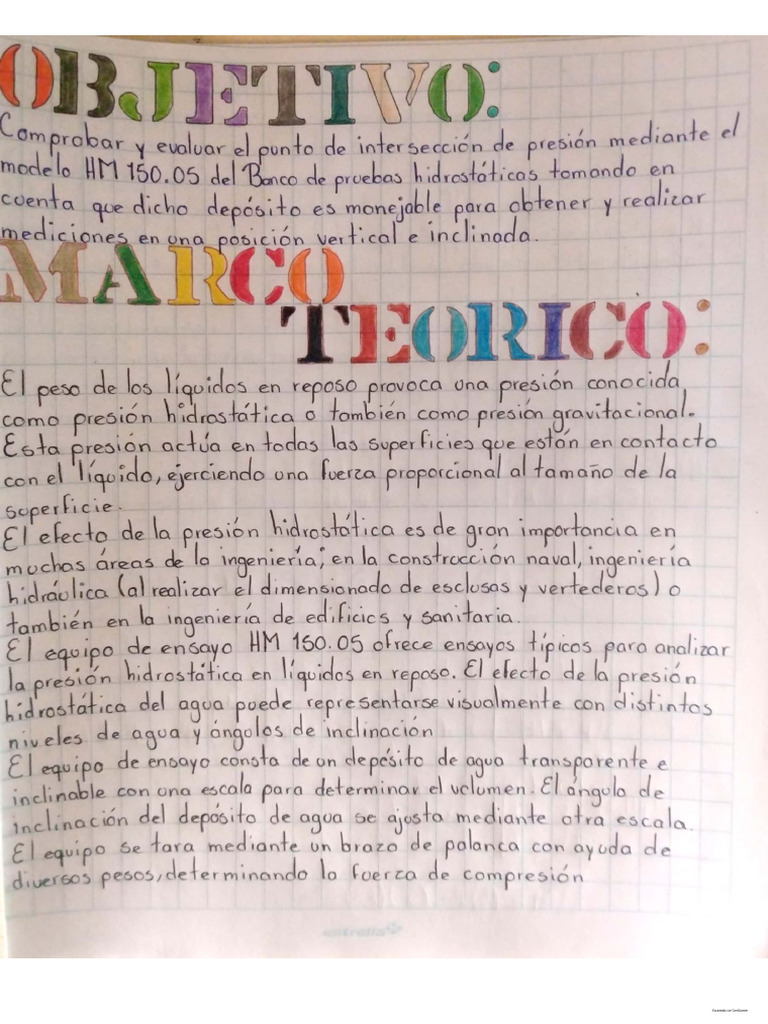 OBJETIVO:
Comprobar y evaluar el punto de intersección de presión mediante el
modelo HM 150.05 del Banco de pruebas hidrostáticas tomando en
cuenta que dicho depósito es manejable para obtener y realizar
mediciones en una posición vertical e inclinada.
MARCO
TEORICO:
El peso de los líquidos en reposo provoca una presión conocida
como presión hidrostática o también como presión gravitacional.
Esta presión actúa en todas las superficies que están en contacto
con el líquido, ejerciendo una fuerza proporcional al tamaño de la
superficie.
El efecto de la presión hidrostática es de gran importancia en
muchas áreas de la ingeniería; en la construcción naval, ingeniería
hidráulica (al realizar el dimensionado de esclusas y vertederos) o
también en la ingeniería de edificios y sanitaria.
El equipo de ensayo HM 150.05 ofrece ensayos típicos para analizar
la presión hidrostática en líquidos en reposo. El efecto de la presión
hidrostática del agua puede representarse visualmente con distintos
niveles de agua y ángulos de inclinación
El equipo de ensayo consta de un depósito de agua transparente e
inclinable con una escala para determinar el volumen. El ángulo de
inclinación del depósito de agua se ajusta mediante otra escala.
El equipo se tara mediante un brazo de palanca con ayuda de
diversos pesos, determinando la fuerza de compresión
Escaneado con CamScanner